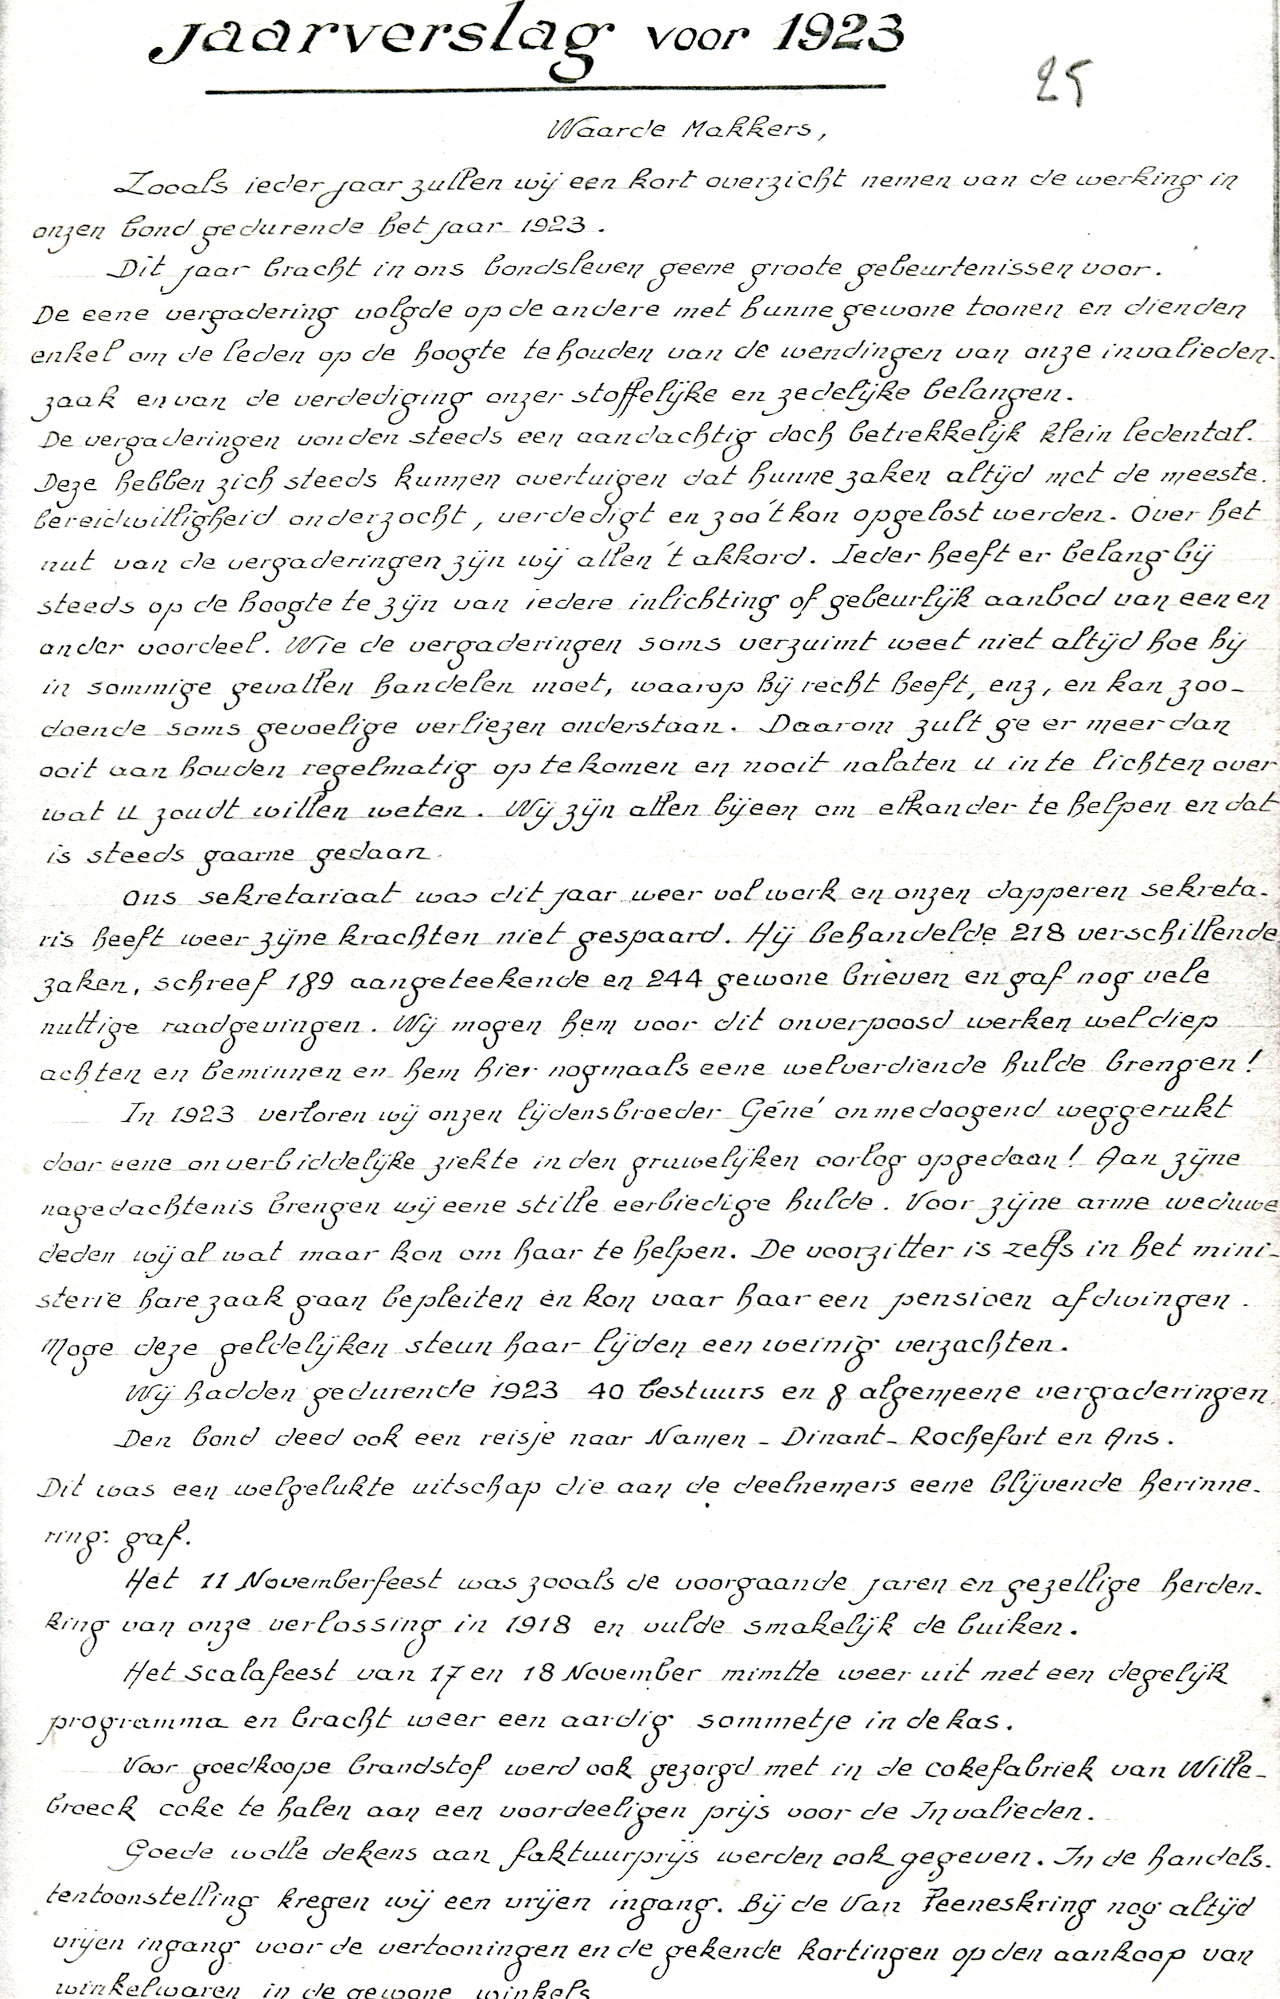 Jaarverslag voor 1923
25
Waarde Makkers,
Zooals ieder jaar zullen wij een kort overzicht nemen van de werking in
onzen bond gedurende het jaar 1923.
Dit jaar bracht in ons bondsleven geene groote gebeurtenissen voor.
De eene vergadering volgde op de andere met hunne gewone toonen en dienden
enkel om de leden op de hoogte te houden van de wendingen van onze invalieden-
zaak en van de verdediging onzer stoffelijke en zedelijke belangen.
De vergaderingen vonden steeds een aandachtig doch betrekkelijk klein ledental.
Deze hebben zich steeds kunnen overtuigen dat hunne zaken altijd met de meeste
bereidwilligheid onderzocht, verdedigt en zoo 't kon opgelost werden. Over het
nut van de vergaderingen zijn wij allen 't akkord. Ieder heeft er belang bij
steeds op de hoogte te zijn van iedere inlichting of gebeurlijk aanbod van een en
ander voordeel. Wie de vergaderingen soms verzuimt weet niet altijd hoe hij
in sommige gevallen handelen moet, waarop hij recht heeft, enz, en kan zoo-
doende soms gevoelige verliezen onderstaan. Daarom zult ge er meer dan
ooit aan houden regelmatig op te komen en nooit nalaten u in te lichten over
wat u zoudt willen weten. Wij zijn allen bijeen om elkander te helpen en dat
is steeds gaarne gedaan.
Ons sekretariaat was dit jaar weer vol werk en onzen dapperen sekreta-
ris heeft weer zijne krachten niet gespaard. Hij behandelde 218 verschillende
zaken, schreef 189 aangeteekende en 244 gewone brieven en gaf nog vele
nuttige raadgevingen. Wij mogen hem voor dit onverpoosd werken wel diep
achten en beminnen en hem hier nogmaals eene welverdiende hulde brengen!
In 1923 verloren wij onzen lijdensbroeder Géné onmedoogend weggerukt
door eene onverbiddelijke ziekte in den gruwelijken oorlog opgedaan! Aan zijne
nagedachtenis brengen wij eene stille eerbiedige hulde. Voor zijne arme weduwe
deden wij al wat maar kon om haar te helpen. De voorzitter is zelfs in het mini-
sterie hare zaak gaan bepleiten en kon vaar haar een pensioen afdwingen.
Moge deze geldelijken steun haar lijden een weinig verzachten.
Wij hadden gedurende 1923 40 bestuurs en 8 algemeene vergaderingen.
Den bond deed ook een reisje naar Namen - Dinant - Rochefort en Ans.
Dit was een welgelukte uitschap die aan de deelnemers eene blijvende herinne-
ring gaf.
Het 11 Novemberfeest was zooals de voorgaande jaren en gezellige herden-
king van onze verlossing in 1918 en vulde smakelijk de buiken.
Het Scalafeest van 17 en 18 November mimtte weer uit met een degelijk
programma en bracht weer een aardig sommetje in de kas.
Voor goedkoope brandstof werd ook gezorgd met in de cokefabriek van Wille-
broeck coke te halen aan een voordeeligen prijs voor de Invalieden.
Goede wolle dekens aan faktuurprijs werden ook gegeven. In de handels-
tentoonstelling kregen wij een vrijen ingang. Bij de Van Peeneskring nog altijd
vrijen ingang voor de vertooningen en de gekende kortingen op den aankoop van
winkelwaren in de gewone winkels